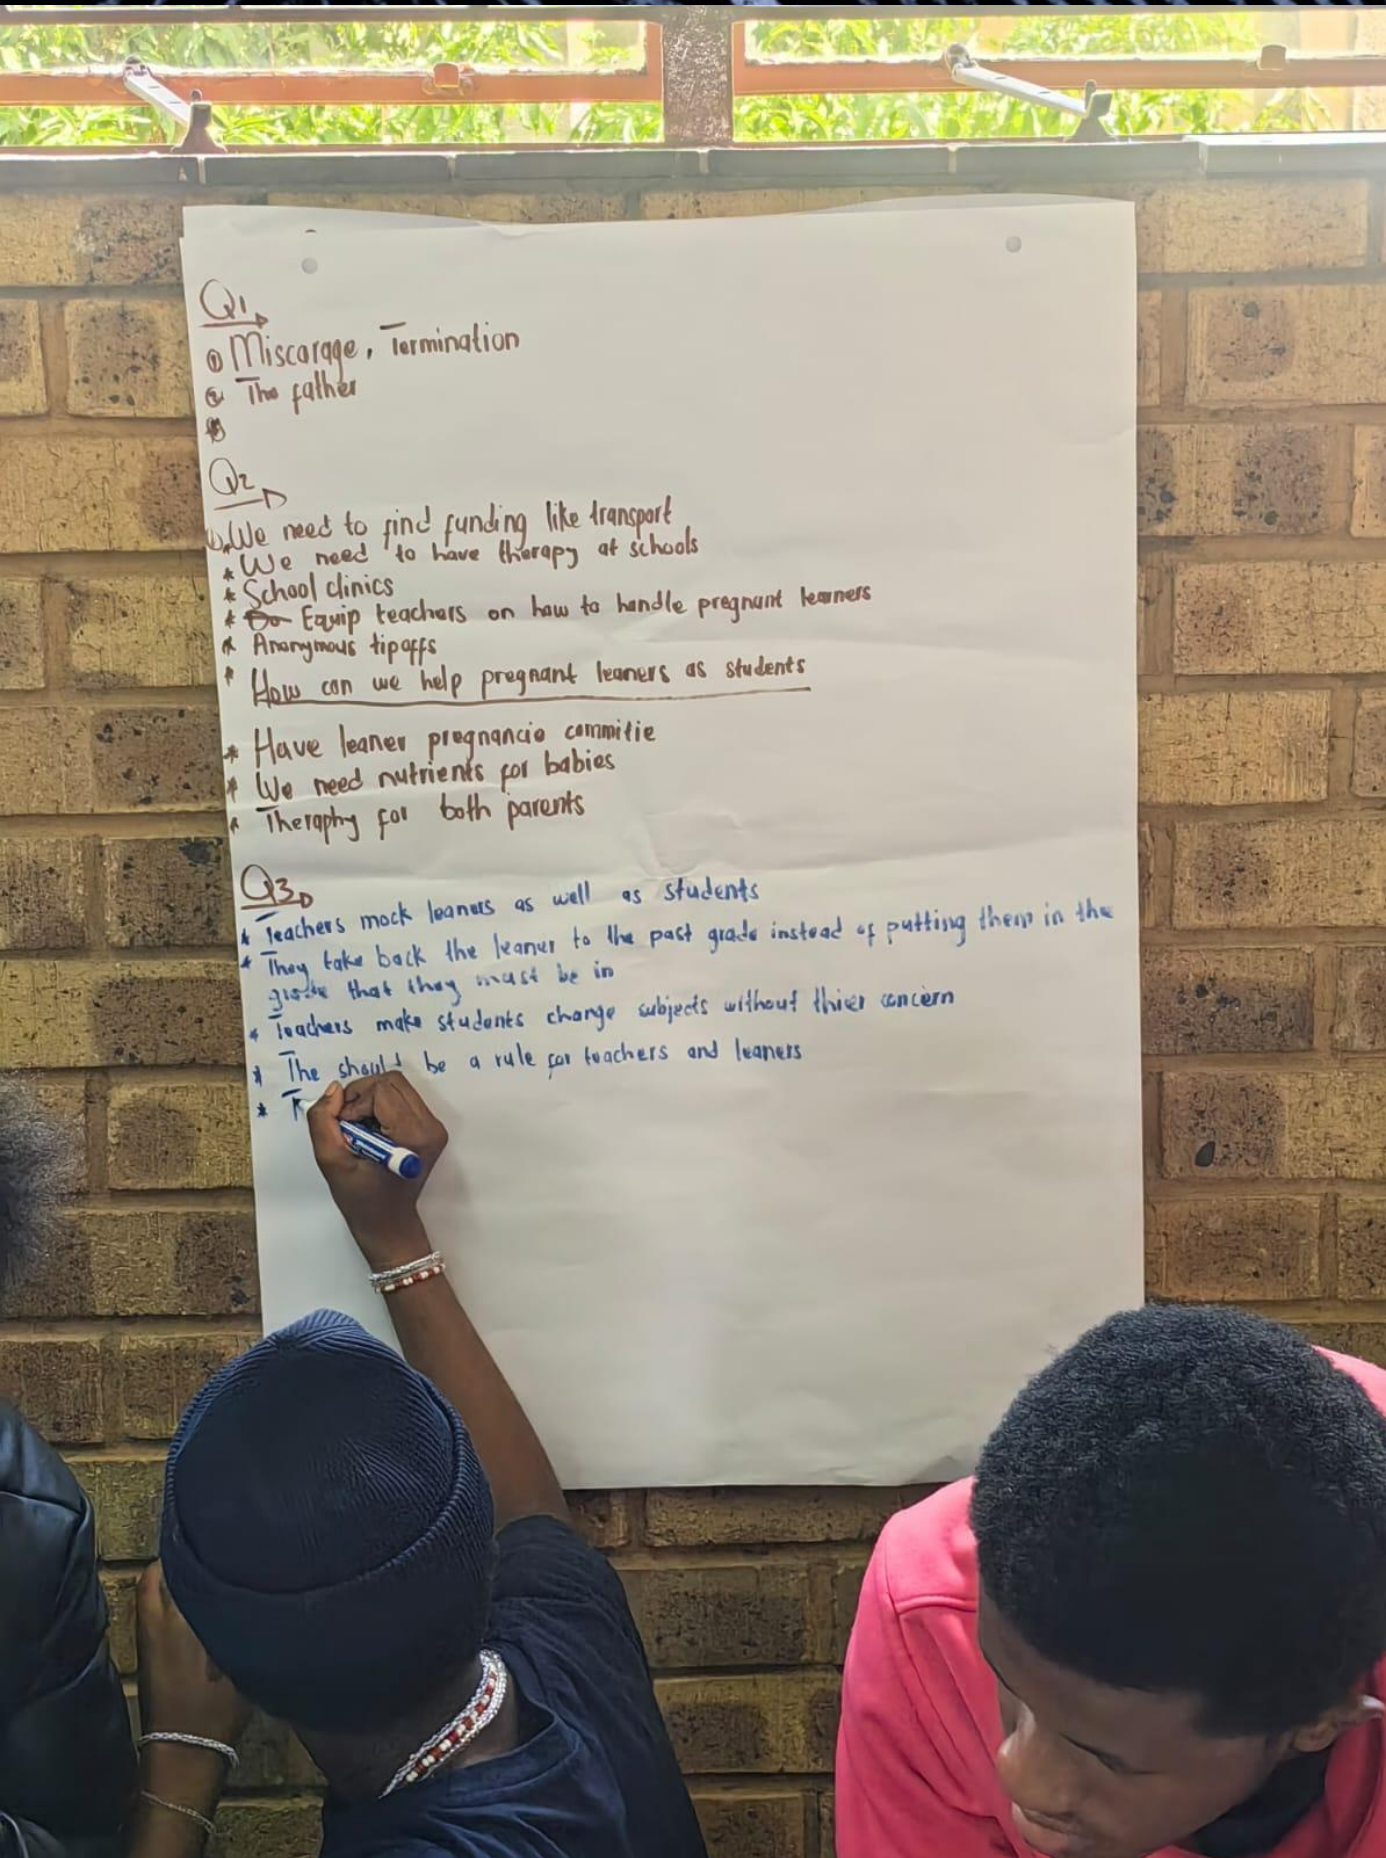 Q1
① Miscarage, Termination
② The father
Q2
① We need to find funding like transport
* We need to have therapy at schools
* School clinics
* Do Equip teachers on how to handle pregnant learners
* Anonymous tipoffs
* How can we help pregnant leaners as students
* Have leaner pregnancie commitie
* We need nutrients for babies
* Theraphy for both parents
Q3
* Teachers mock leaners as well as students
* They take back the leaner to the past grade instead of putting them in the
grade that they must be in
* Teachers make students change subjects without thier concern
* The should be a rule for teachers and leaners
* T